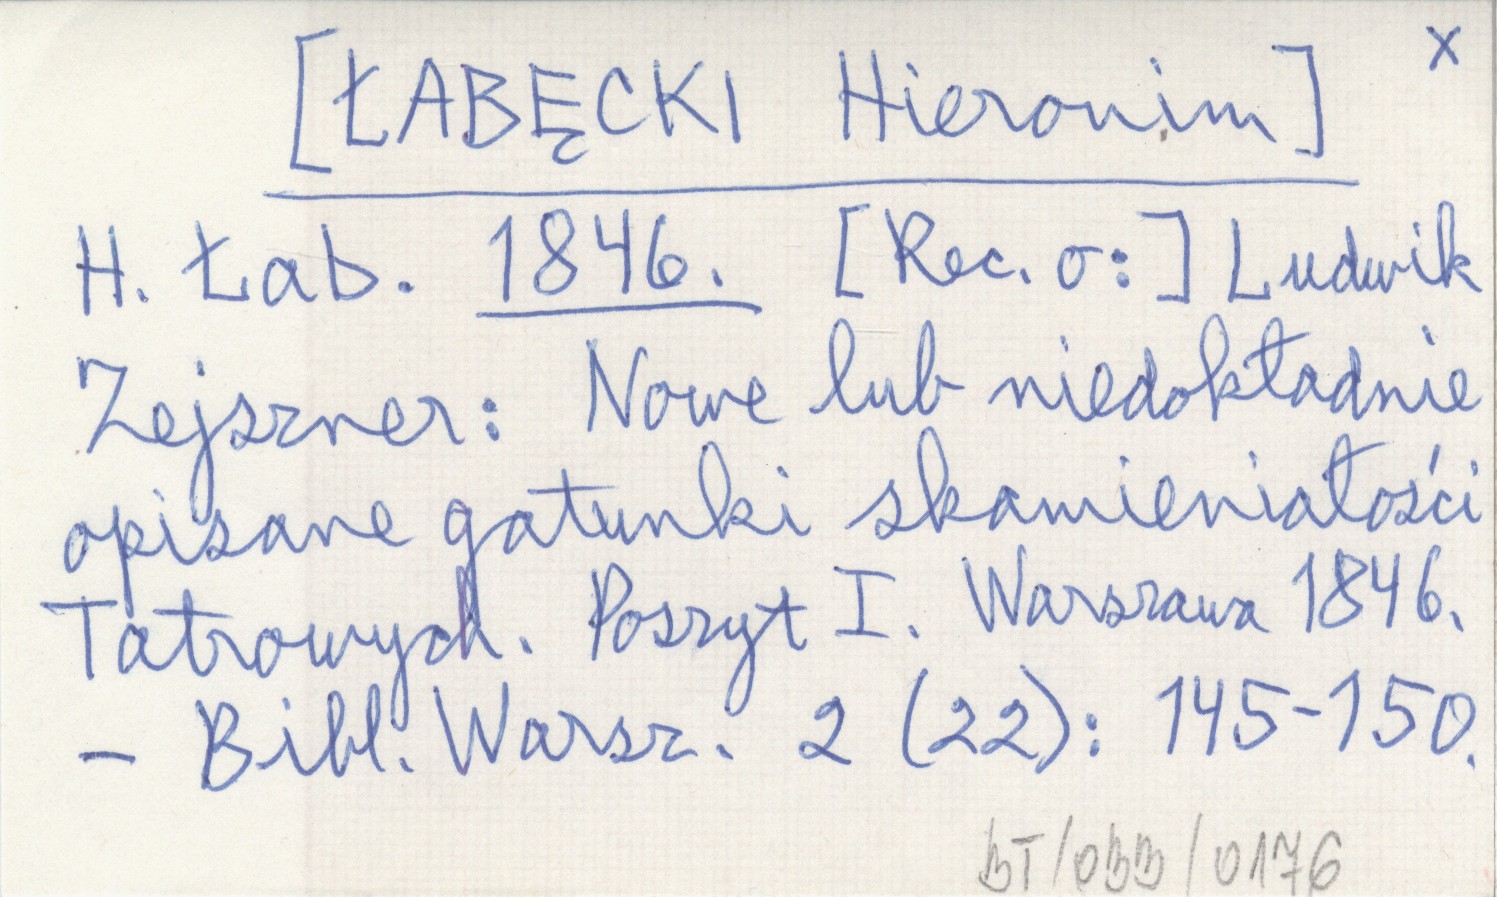 [ŁABĘCKI Hieronim] x
H. Łab. 1846. [Rec. o:] Ludwik
Zejszner: Nowe lub niedokładnie
opisane gatunki skamieniałości
Tatrowych. Poszyt I. Warszawa 1846.
– Bibl. Warsz. 2 (22): 145-150.
BT/OBB/0176